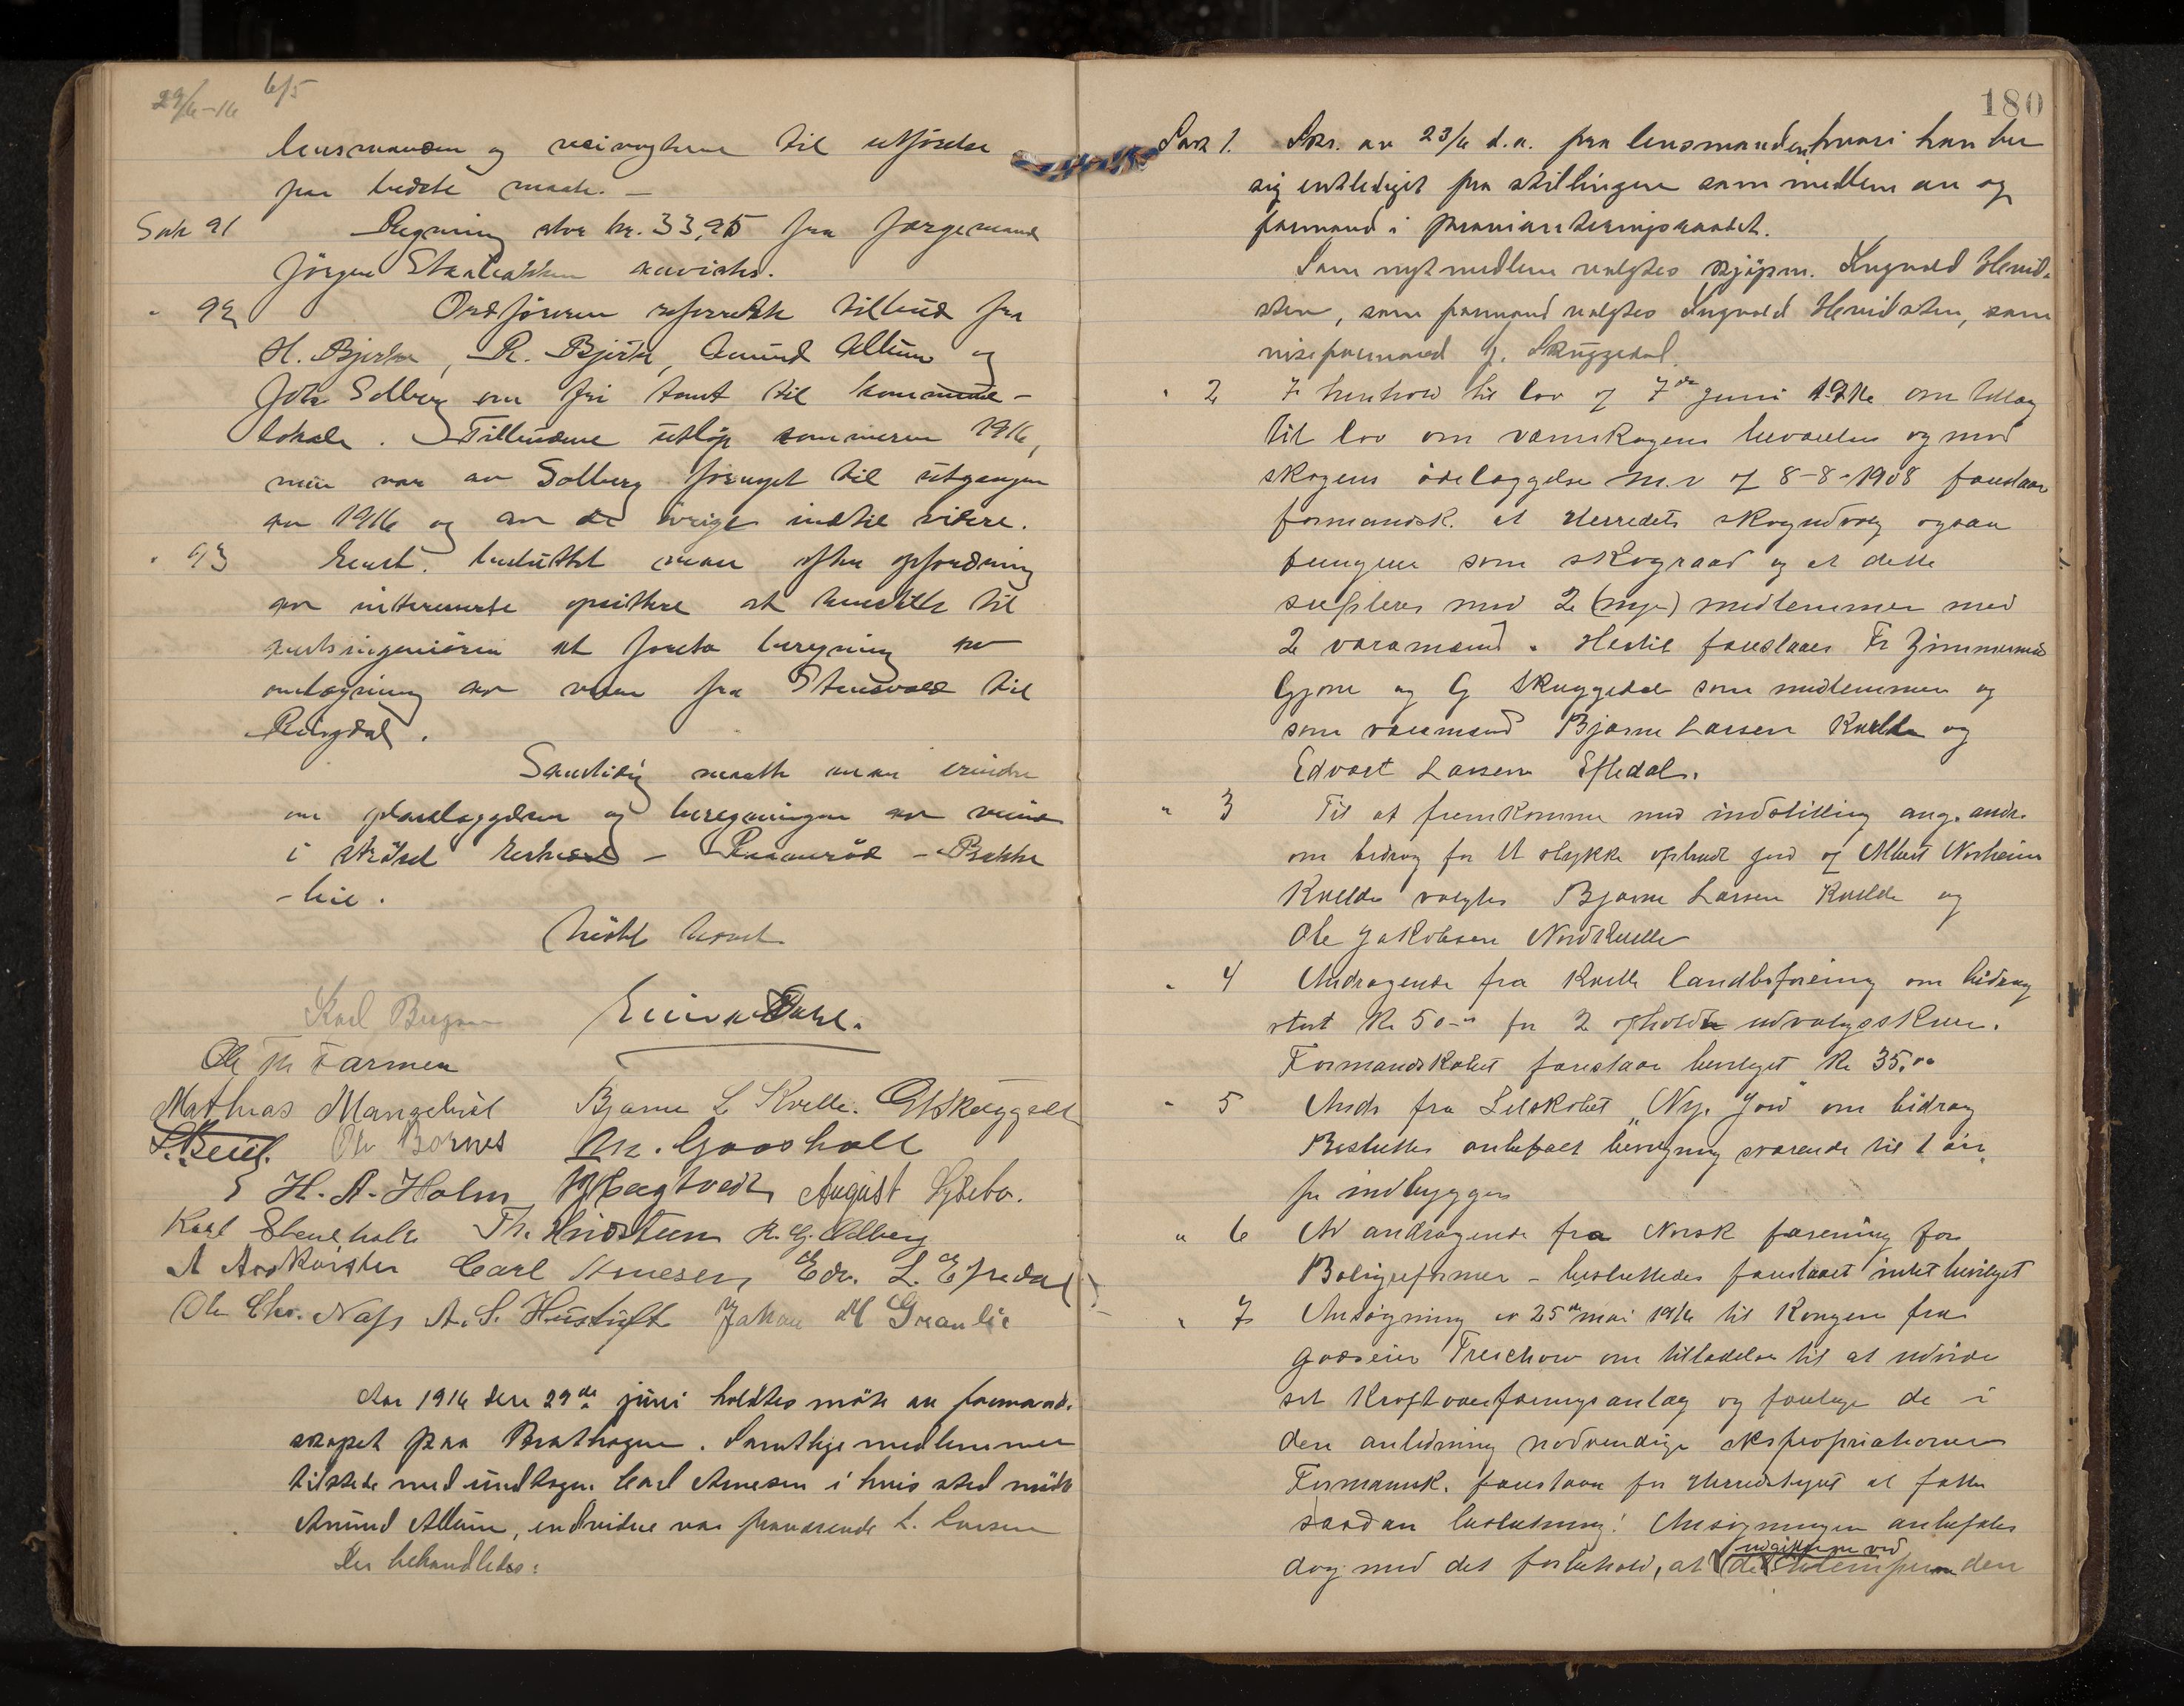 29/6-16 6/5
lensmanden og veivogterne til utførelse
paa bedste maate. –
Sak 91 Regning stor kr. 33,95 fra færgemand
Jörgen avvistes.
" 92 Ordföreren refererte tilbud fra
H. Bjerke, R. Bjerke, Amund Allum og
Johs Solberg om fri tomt til kommune-
lokale. Tilbudene utløp sommeren 1916,
men var av Solberg fornyet til utgangen
av 1916 og av de övrige indtil videre.
" 93 Enst. besluttet man efter opfordring
av interesserte opsittere at henstille til
amtsingeniören at foreta beregning av
omlægning av veien fra Stensvold til
Ringdal.
Samtidig maatte man erindre
om planlæggelsen og beregningen av veien
i ströket – – Bakke
-lie.
Mötet hævet
Einar Dahl.
Ole M Farmen
Mathias Mangelröd Bjarne L Kvelle. G Skuggedal
Ole Bornes M. Gaasholt
H. A. Holm August
Karl Stensholt Th. Hvidsteen R. G. Solberg
Carl Arnesen, Edv. L. Eftedal
Ole Chr. Næss A. S. Jakob M Granlie
Aar 1916 den 29de juni holdtes möte av formand-
skapet paa Brathagen. Samtlige medlemmer
tilstede med undtagen Carl Arnesen i hvis sted mötte
Amund Allum, endvidere var fraværende L. Larsen
Der behandledes:
180
Sak 1. Skr. av 23/6 d.a. fra lensmanden hvori han ber
sig entlediget fra stillingen som medlem av og
formand i provianteringsraadet.
Som nyt medlem valgtes kjöpm. Ingvald Hvid-
sten, som formand valgtes Ingvald Hvidsten, som
viseformand G. Skuggedal
" 2 I henhold til lov af 7de juni 1916 om tillæg
til lov om værnskogens bevarelse og mod
skogens ödelæggelse m.v af 8-8-1908 foreslaar
formandsk. at Herredets skogudvalg ogsaa
fungerer som skograad og at dette
supleres med 2 (nye) medlemmer med
2 varamænd. Hertil foreslaaes Fr Zimmermann
Gjone og G Skuggedal som medlemmer og
som varamænd Bjarne Larsen Kvelle og
Edvart Larsen Eftedal.
" 3 Til at fremkomme med indstilling ang. andr.
om bidrag for et stykke opbrudt jord af Albert Norheim
Kvelde valgtes Bjarne Larsen Kvelde og
Ole Jakobsen Nordkvelle
" 4 Andragende fra Kvelle landboforening om bidrag
stort Kr 50-00 for 2 afholdte udvalgsskuer.
Formandskabet foreslaar bevilget Kr 35,00
" 5 Andr fra Selskabet "Ny Jord" om bidrag
Besluttes anbefalt bevilgning svarende til 1 öre
pr indbygger
" 6 Et andragende fra Norsk forening for
Boligreformer – besluttedes foreslaaet intet bevilget
" 7 Ansögning av 25de mai 1916 til Kongen fra
godseier Treschow om tilladelse til at udvide
sit Kraftoverføringsanlæg og foretage de i
den anledning nødvendige ekspropriationer
Formansk. foreslaar for Herredstyret at fatte
saadan beslutning! Ansögningen anbefales
dog med det forbehold, at udgifterne ved den